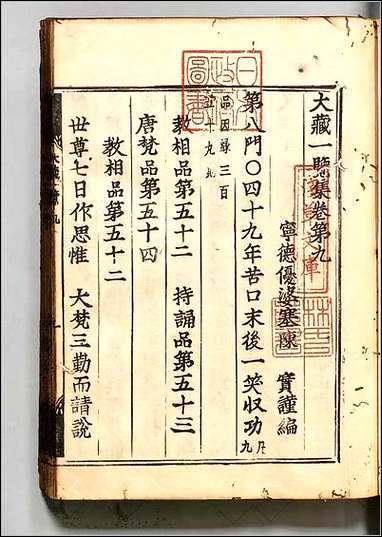 大藏一覽集卷第九
寧德優婆塞陳 實謹編
第八門〇四十九年苦口末後一笑収功 凡九
品因緣三百
教相品第五十二 持誦品第五十三
唐梵品第五十四
教相品第五十二
世尊七日作思惟 大梵三勤而請說
日本政府圖書
淺草文庫